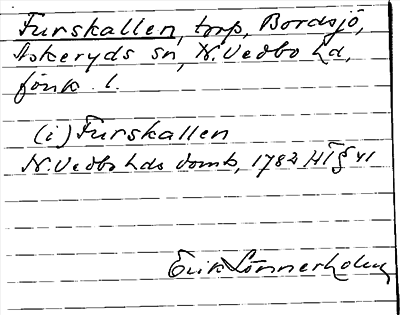 Furskallen, torp, Bordsjö,
Askeryds sn, N. Vedbo hd,
Jönk. l.
(i) Furskallen
N. Vedbo hds domb, 1782 HT § 41
Erik Lönnerholm